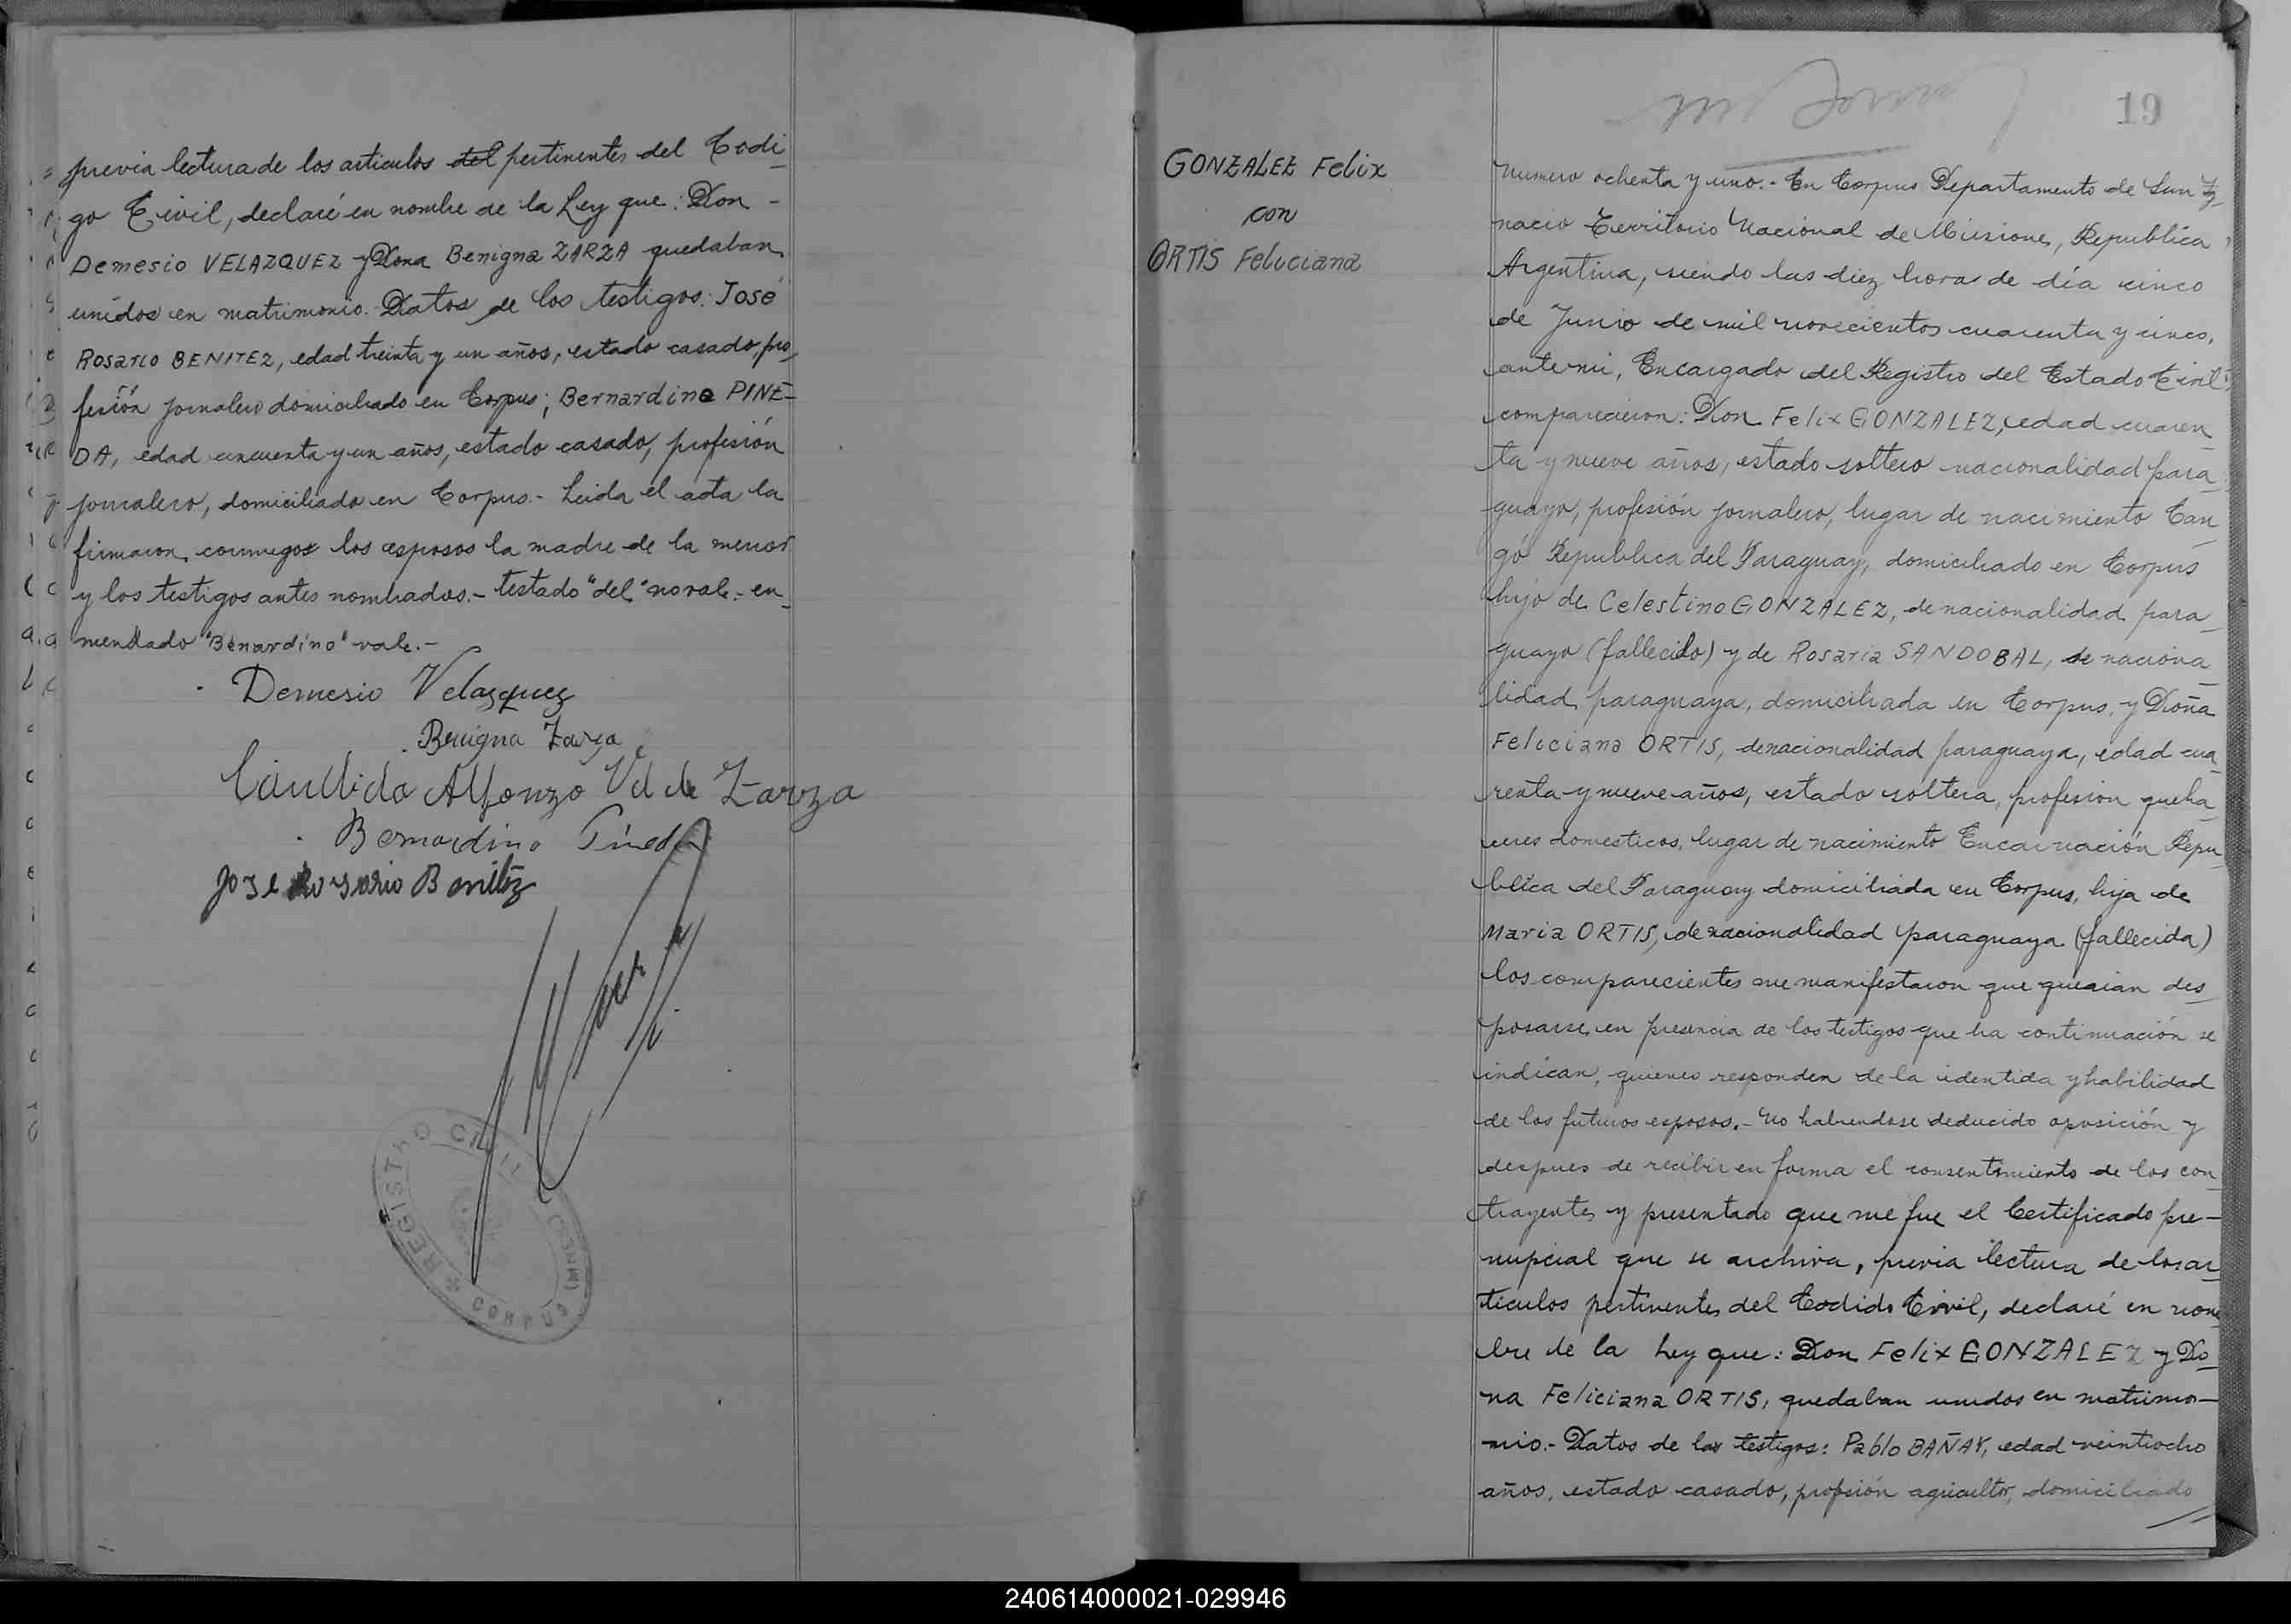 previa lectura de los articulos del pertinentes del Codi-
go Civil, declaré en nombre de la Ley que: Don -
Demesio VELAZQUEZ y Dona Benigna ZARZA quedaban
unidos en matrimonio. Datos de los testigos: José
Rosario BENITEZ, edad treinta y un años, estado casado, pro-
fesión jornalero domiciliado en Corpus; Bernardino PINE-
DA, edad cincuenta y un años, estado casado, profesión
jornalero, domiciliado en Corpus.- Leida el acta la
firmaron conmigo los esposos la madre de la menor
y los testigos antes nombrados.- testado "del" no vale.- en-
mendado "Benardino" vale.-
Demesio Velazquez
Benigna Zarza
Candida Alfonzo Vd de Zarza
Bernardino Pineda
Jose Rosario Benitez
* REGISTRO CIVIL * CORPUS (MNES)
19
GONZALEZ Felix
con
ORTIS Feliciana
Numero ochenta y uno.- En Corpus Departamento de San Ig-
nacio Territorio Nacional de Misiones, Republica
Argentina, siendo las diez hora de día cinco
de Junio de mil novecientos cuarenta y cinco,
ante mi, Encargado del Registro del Estado Civil
comparecieron: Don Felix GONZALEZ, edad cuaren
ta y nueve años, estado soltero nacionalidad para-
guayo, profesión jornalero, lugar de nacimiento Can
gó Republica del Paraguay, domiciliado en Corpus
hijo de Celestino GONZALEZ, de nacionalidad para-
guayo (fallecido) y de Rosaria SANDOBAL, de naciona-
lidad paraguaya, domiciliada en Corpus, y Doña
Feliciana ORTIS, de nacionalidad paraguaya, edad cua-
renta y nueve años, estado soltera, profesion queha-
ceres domesticos, lugar de nacimiento Encarnación Repu-
blica del Paraguay domiciliada en Corpus, hija de
Maria ORTIS, de nacionalidad paraguaya (fallecida)
los comparecientes me manifestaron que querian des-
posarse en presencia de los testigos que ha continuación se
indican, quienes responden de la identida y habilidad
de los futuros esposos.- No habiendose deducido oposición y
despues de recibir en forma el consentimiento de los con-
trayentes y presentado que me fue el Certificado pre-
nupcial que se archiva, previa lectura de los ar-
ticulos pertinentes del Codido Civil, declaré en nom-
bre de la Ley que: Don Felix GONZALEZ y Do-
na Feliciana ORTIS, quedaban unidos en matrimo-
nio.- Datos de los testigos: Pablo BAÑAY, edad veintiocho
años, estado casado, profesión agricultor, domiciliado
240614000021-029946